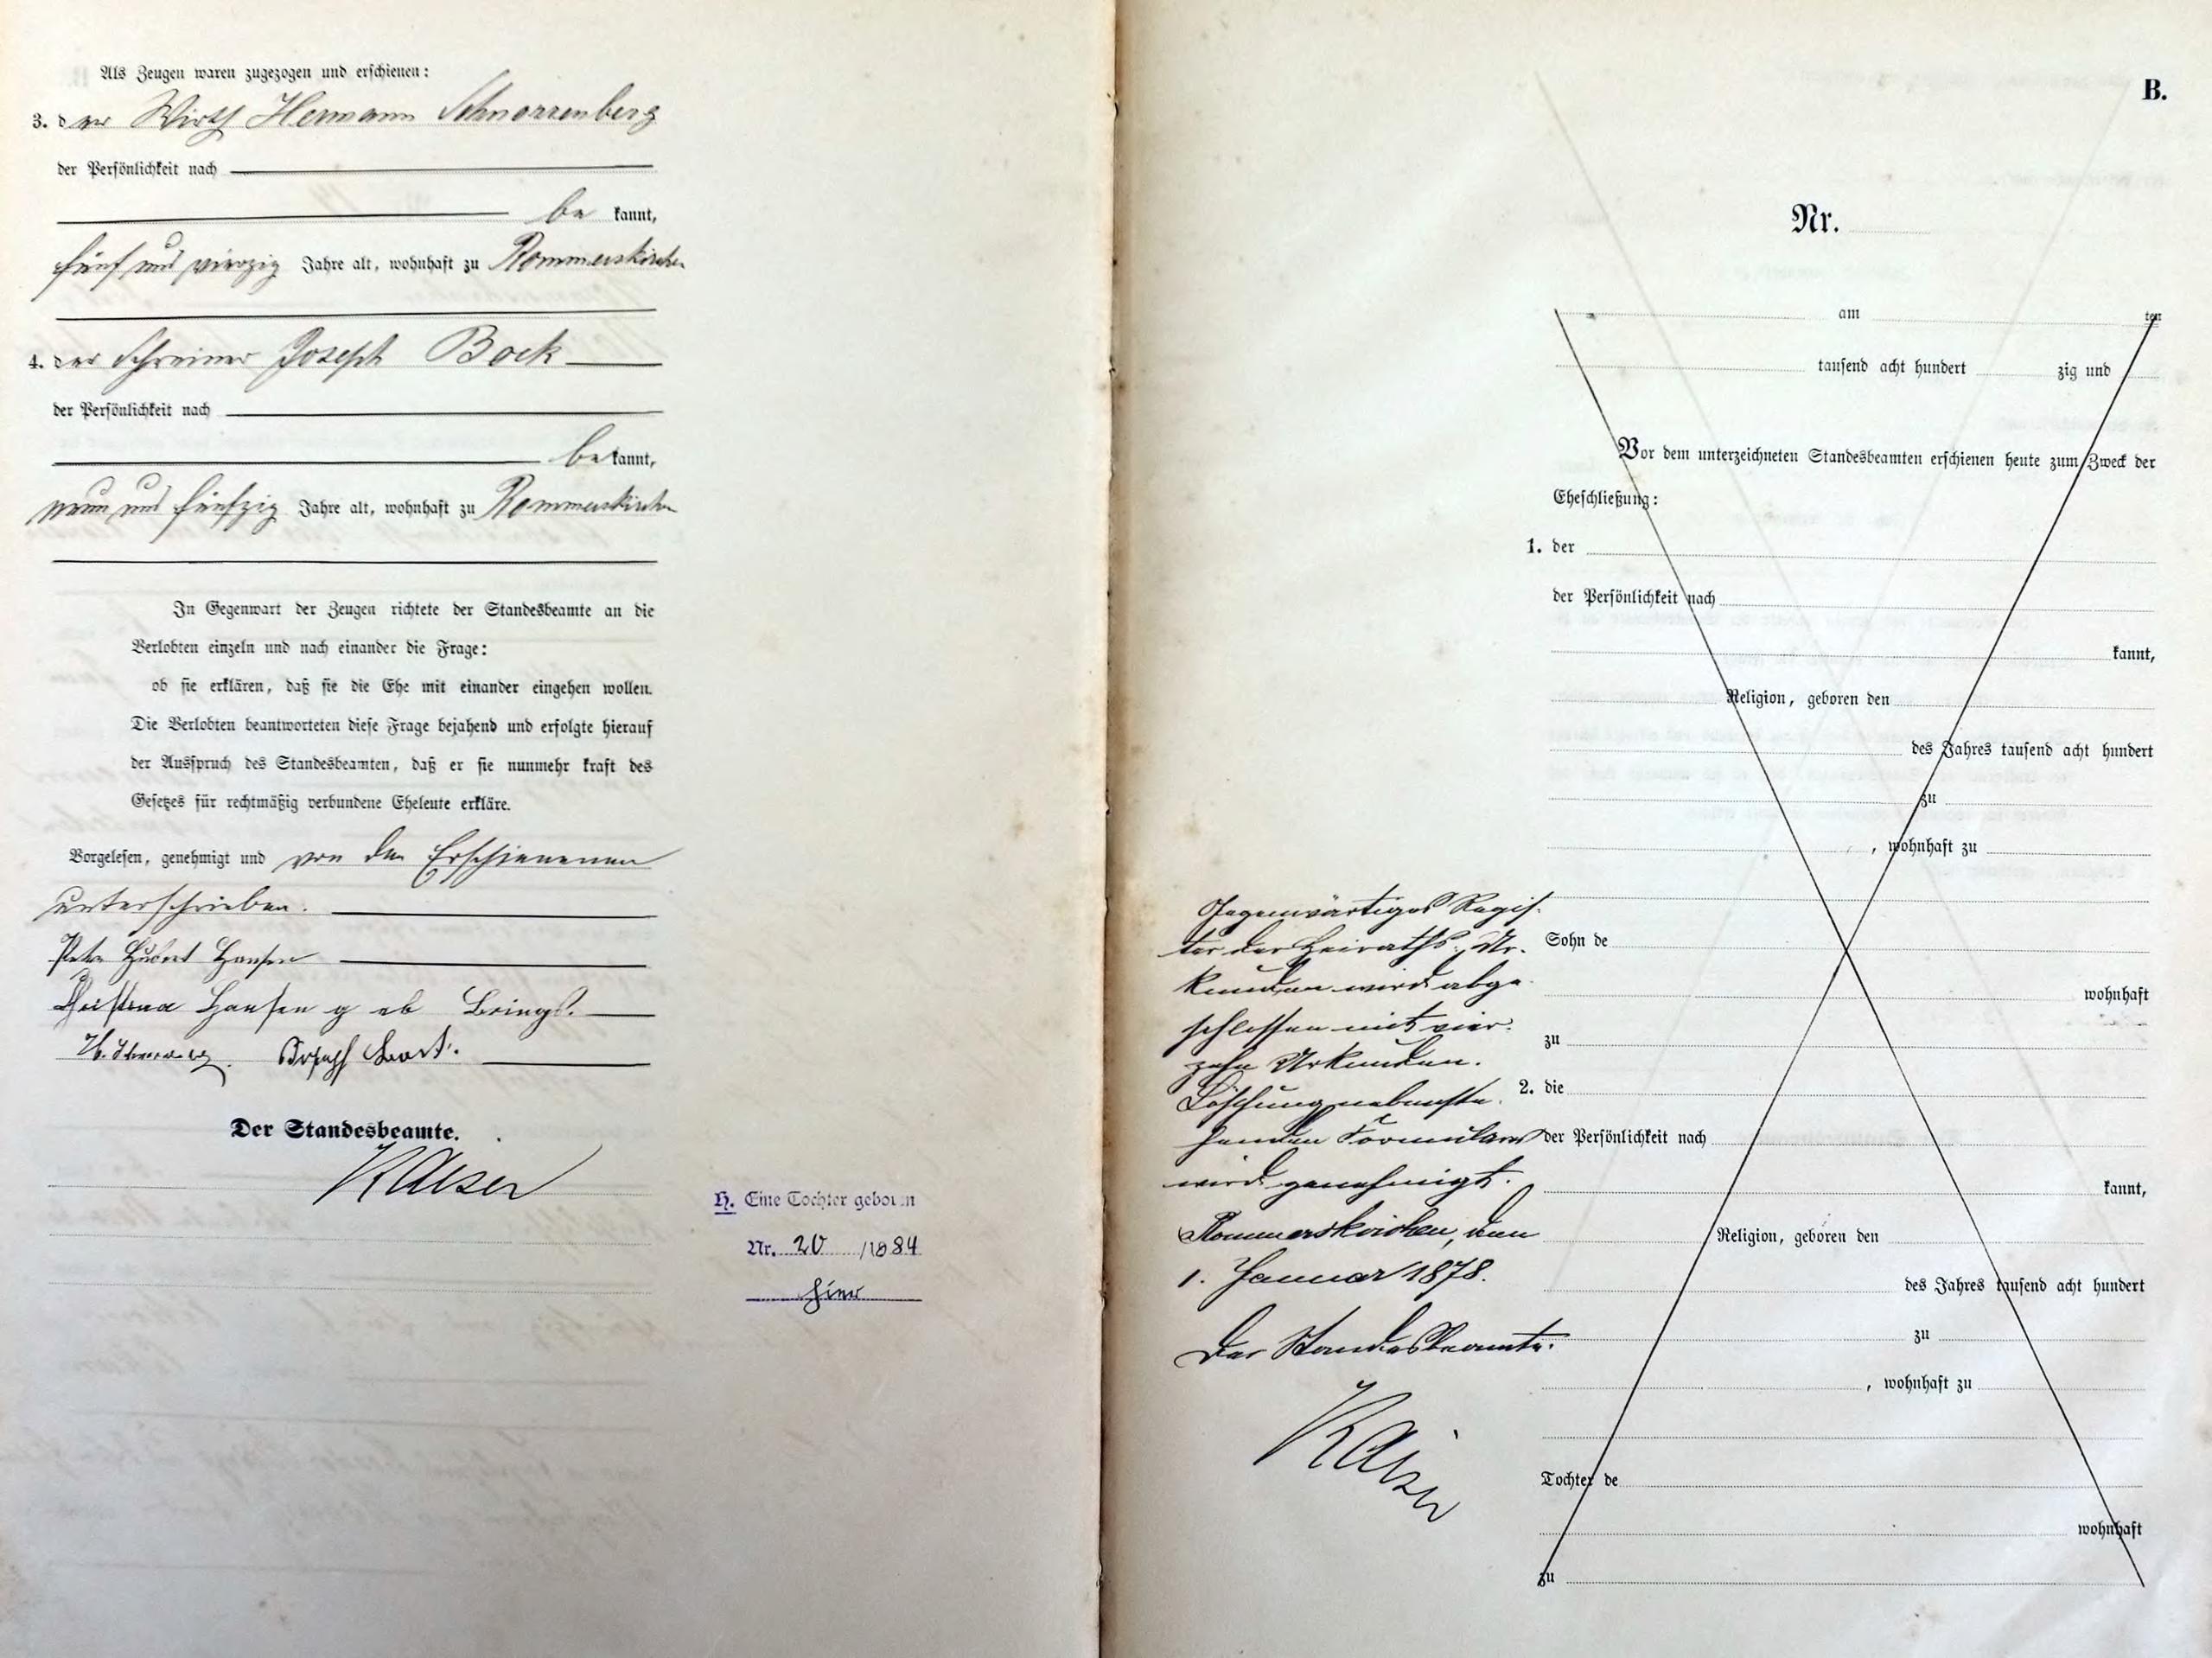 Als Zeugen waren zugezogen und erschienen:
3. der Wirth Hermann Schnorrenberg
der Persönlichkeit nach
be kannt,
fünf und vierzig Jahre alt, wohnhaft zu Rommerskirchen
4. der Schreiner Joseph Bock
der Persönlichkeit nach
be kannt,
neun und fünfzig Jahre alt, wohnhaft zu Rommerskirchen
In Gegenwart der Zeugen richtete der Standesbeamte an die
Verlobten einzeln und nach einander die Frage:
ob sie erklären, daß sie die Ehe mit einander eingehen wollen.
Die Verlobten beantworteten diese Frage bejahend und erfolgte hierauf
der Ausspruch des Standesbeamten, daß er sie nunmehr kraft des
Gesetzes für rechtmäßig verbundene Eheleute erkläre.
Vorgelesen, genehmigt und von den Erschienenen
unterschrieben.
Peter Hubert Hansen
Christina Hansen geb Brings.
H. Schnorrenberg. Joseph Bock.
Der Standesbeamte.
Kaiser
H. Eine Tochter geboren
Nr. 20 /1884
hier
B.
Nr.
am ten
tausend acht hundert zig und
Vor dem unterzeichneten Standesbeamten erschienen heute zum Zweck der
Eheschließung:
1. der
der Persönlichkeit nach
kannt,
Religion, geboren den
des Jahres tausend acht hundert
zu
, wohnhaft zu
Sohn de
wohnhaft
zu
2. die
der Persönlichkeit nach
kannt,
Religion, geboren den
des Jahres tausend acht hundert
zu
, wohnhaft zu
Tochter de
wohnhaft
zu
Gegenwärtiges Regis-
ter der Heiraths-Ur-
kunden wird abge-
schlossen mit vier-
zehn Urkunden.
Löschung nebenste-
henden Formulars
wird genehmigt.
Rommerskirchen, den
1. Januar 1878.
Der Standesbeamte.
Kaiser